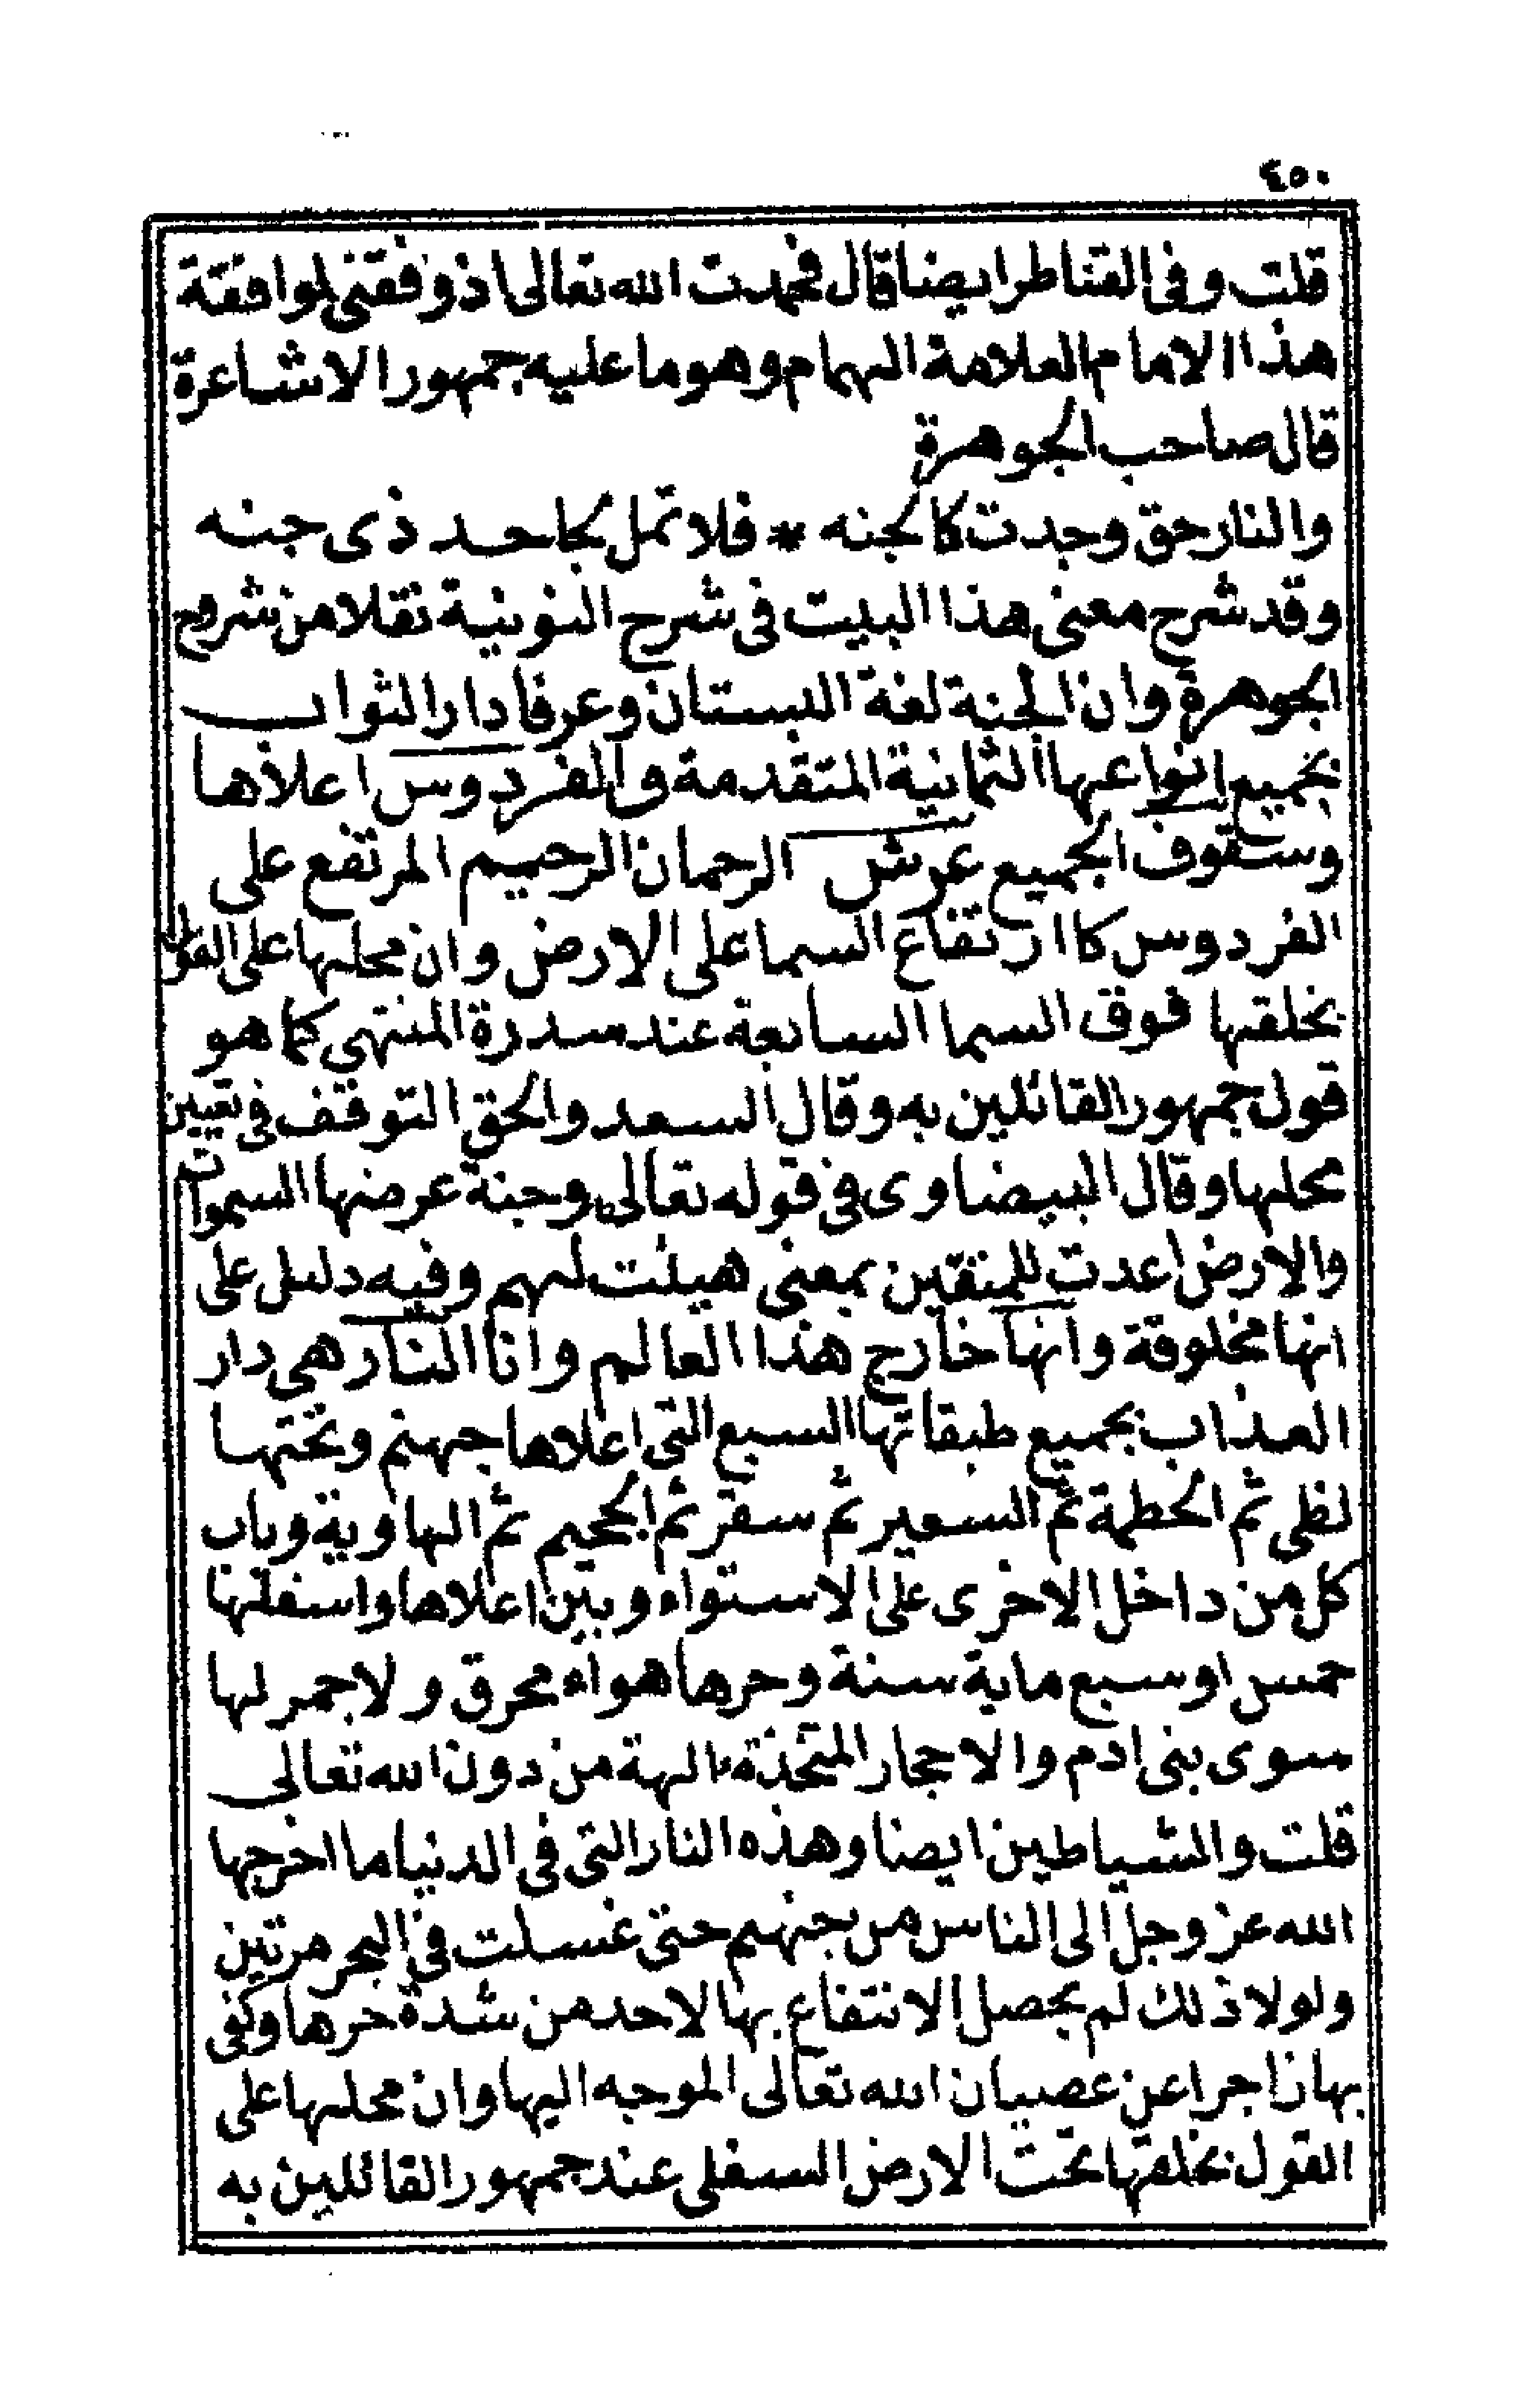 ٤٥٠
قلت وفى القناطر ايضا قال فحمدت الله تعالى اذ وفقنى لموافقة
هذا الامام العلامة الهمام وهو ما عليه جمهور الاشاعرة
قال صاحب الجوهرة
والنار حق وجدت كالجنه * فلا تمل لجاحد ذى جنه
وقد شرح معنى هذا البيت فى شرح النونية نقلا من شروح
الجوهرة وان الجنة لغة البستان وعرفا دار الثواب
بجميع انواعها الثمانية المتقدمة والفردوس اعلاها
وسقوف الجميع عرش الرحمان الرحيم المرتفع على
الفردوس كا ارتفاع السما على الارض وان محلها على القول
بخلقها فوق السما السابعة عند سدرة المنتهى كما هو
قول جمهور القائلين به وقال السعد والحق التوقف فى تعيين
محلها وقال البيضاوى فى قوله تعالى وجنة عرضها السموات
والارض اعدت للمتقين بمعنى هيئت لهم وفيه دليل على
انها مخلوقة وانها خارج هذا العالم وانا النار هى دار
العذاب بجميع طبقاتها السبع التى اعلاها جهنم وتحتها
لظى ثم الحطمة ثم السعير ثم سقر ثم الجحيم ثم الهاوية وباب
كل من داخل الاخرى على الاستواء وبين اعلاها واسفلها
خمس او سبع ماية سنة وحرها هواء محرق ولا جمر لها
سوى بنى ادم والاحجار المتخذة الهة من دون الله تعالى
قلت والشياطين ايضا وهذه النار التى فى الدنيا ما اخرجها
الله عز وجل الى الناس من جهنم حتى غسلت فى البحر مرتين
ولولا ذلك لم يحصل الانتفاع بها لاحد من شدة حرها وكفى
بها زاجرا عن عصيان الله تعالى الموجه اليها وان محلها على
القول بخلقها تحت الارض السفلى عند جمهور القائلين به